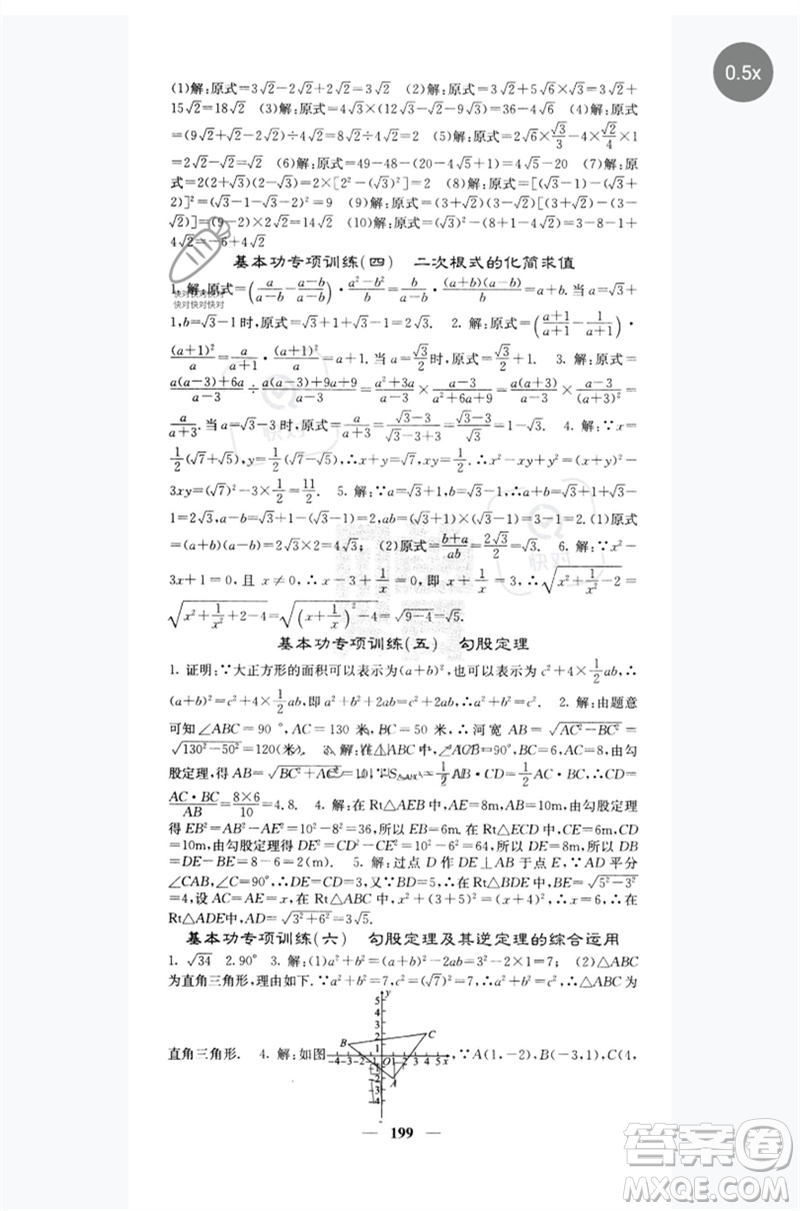 0.5x
(1)解:原式=3√2-2√2+2√2=3√2 (2)解:原式=3√2+5√6×√3=3√2+
15√2=18√2 (3)解:原式=4√3×(12√3-9√3)=36-4√6 (4)解:原式
=(9√2+√2-2√2)÷4√2=8√2÷4√2=2 (5)解:原式=2√6×√3/3-4×√2/4×1
=2√2-√2=√2 (6)解:原式=49-48-(20-4√5+1)=4√5-20 (7)解:原
式=2(2+√3)(2-√3)=2×[2²-(√3)²]=2 (8)解:原式=[(√3-1)(√3+
√2)]²= (9)解:原式=(3+√2)(3-√2)[(3+√2)+(3-
√2)]=(9-2)×2√2=14√2 (10)解:原式=(√3)²-(8+1-4√2)=3-8-1+
4√2=-6+4√2
基本功专项训练(四) 二次根式的化简求值
1. 解:原式=(a/(a-b)-(a-b)/(a-b))·(a²-b²)/b=b/(a-b)·(a+b)(a-b)/b=a+b. 当 a=√3+
快对快对快对
1,b=√3-1时,原式=√3+1+√3-1=2√3. 2. 解:原式=((a+1)/(a+1)-1/(a+1))·
快对快对快对
(a+1)²/a=a/(a+1)·(a+1)²/a=a+1. 当 a=√3/2时,原式=√3/2+1 3. 解:原式=
(a(a-3)+6a)/(a-3)÷(a(a-3)+9+9a-3a)/(a-3)=(a²+3a)/(a-3)×(a-3)/(a²+6a+9)=a(a+3)/(a-3)×(a-3)/(a+3)²=
a/(a+3). 当 a=√3-3时,原式=(√3-3)/(√3-3+3)=(√3-3)/√3=1-√3. 4. 解:∵x=
1/2(√7+√5),y=1/2(√7-√5),∴x+y=√7,xy=1/2,∴x²-xy+y²=(x+y)²-
3xy=(√7)²-3×1/2=11/2. 5. 解:∵a=√3+1,b=√3-1,∴a+b=√3+1+√3-
1=2√3,a-b=√3+1-√3+1=2,ab=(√3+1)(√3-1)=3-1=2.(1)原式
=(a+b)(a-b)=2√3×2=4√3; (2)原式=(b+a)/ab=2√3/2=√3. 6. 解:∵x²-
3x+1=0,且 x≠0,∴x-3+1/x=0,即 x+1/x=3,∴√(x²+1/x²-2)=
√(x²+1/x²+2-4)=√((x+1/x)²-4)=√(9-4)=√5.
基本功专项训练(五) 勾股定理
1. 证明:∵大正方形的面积可以表示为(a+b)²,也可以表示为c²+4×1/2ab,
∴(a+b)²=c²+4×1/2ab,即a²+b²+2ab=c²+2ab,∴a²+b²=c². 2. 解:由题意
可知∠ABC=90°,AC=130米,BC=50米,∴河宽 AB=√(AC²-BC²)=
√(130²-50²)=120(米). 3. 解:在△ABC中,∠ACB=90°,BC=6,AC=8,由勾
股定理得AB=√(BC²+AC²)=10,∵S△ABC=1/2AB·CD=1/2AC·BC,∴CD=
AC·BC/AB=8×6/10=4.8. 4. 解:在Rt△AEB中,AE=8m,AB=10m,由勾股定理
得EB²=AB²-AE²=10²-8²=36,所以EB=6m. 在Rt△ECD中,CE=6m,CD
=10m,由勾股定理得DE²=CD²-CE²=10²-6²=64,所以DE=8m,所以DB=
DE-BE=8-6=2(m). 5. 解:过点D作DE⊥AB于点E,∵AD平分
∠CAB,∠C=90°,∴CD=DE=3,在Rt△BDE中,BD=5,∴BE=√(5²-3²)
=4,设AC=AE=x,由勾股定理得x²+(3+5)²=(x+4)²,∴x=6,∴在
Rt△ADE中,AD=√(3²+6²)=3√5.
基本功专项训练(六) 勾股定理及其逆定理的综合运用
1. √34 2. 90° 3. 解:(1)a²+b²=(a+b)²-2ab=5²-2×9=7; (2)△ABC
为直角三角形,理由如下.∵a²+b²=7,c²=(√7)²=7,∴a²+b²=c²,∴△ABC为
直角三角形. 4. 解:如图 ,∵A(1,-2),B(-3,1),C(4,
199
答案圈
MXQE.COM